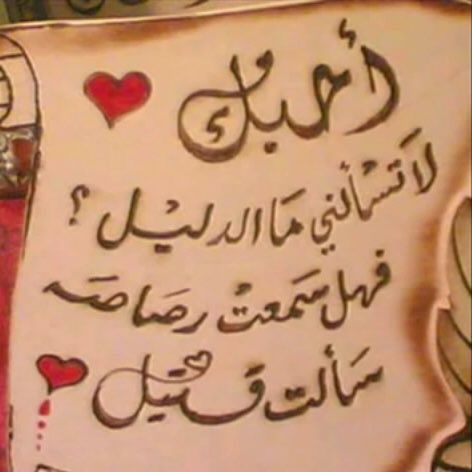 أحبك
لا تسألني ما الدليل ؟
فهل سمعت رصاصه
سألت قتيل